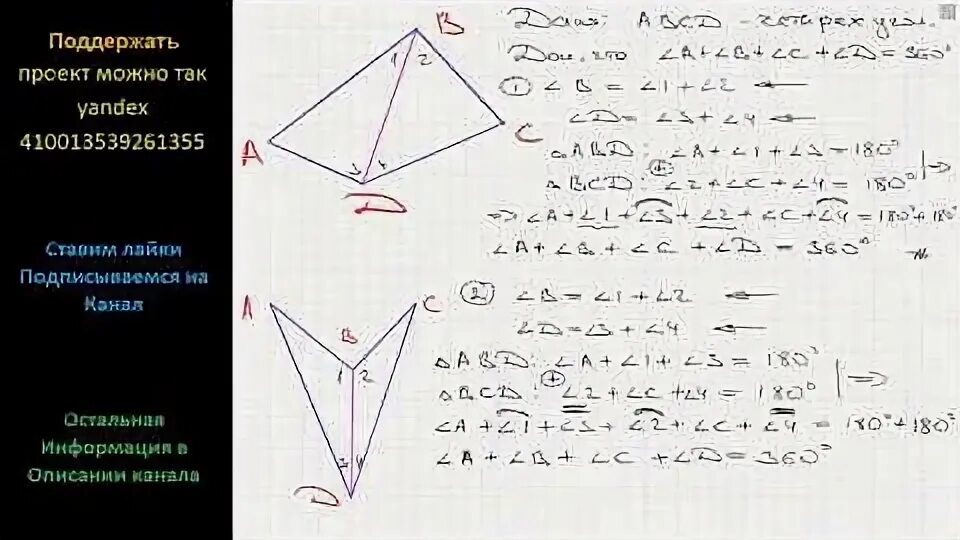 Поддержать
проект можно так
yandex
410013539261355
Ставим лайки
Подписываемся на
Канал
Остальная
Информация в
Описании канала
B
1 2
A
C
3 4
D
Дано: ABCD - четырехугол.
Док. что ∠A+∠B+∠C+∠D=360°
① ∠B = ∠1+∠2 ←
∠D = ∠3+∠4 ←
△ABD: ∠A+∠1+∠3=180°
⊕ |⇒
△BCD: ∠2+∠C+∠4=180°
⇒ ∠A+∠1+∠3+∠2+∠C+∠4=180°+180°
∠A+∠B+∠C+∠D=360°
A
C
B
1 2
3 4
D
② ∠B=∠1+∠2 ←
∠D=∠3+∠4 ←
△ABD: ∠A+∠1+∠3=180°
⊕ |⇒
△BCD: ∠2+∠C+∠4=180°
∠A+∠1+∠3+∠2+∠C+∠4=180°+180°
∠A+∠B+∠C+∠D=360°